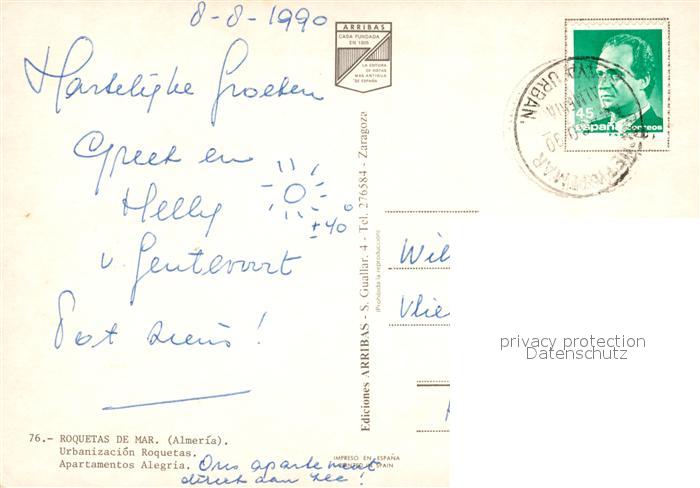 8-8-1990
Hartelijke Groeten
Greet en
Nelly
± 40°
v. Gentevoort
Tot ziens!
ARRIBAS
CASA FUNDADA
EN 1905
LA EDITORA
DE VISTAS
MAS ANTIGUA
DE ESPAÑA
45
España correos
URBAN.
ALMERIA
Ediciones ARRIBAS - S. Guallar, 4 - Tel. 276584 - Zaragoza
(Prohibida la reproducción)
Wil
Vlie
privacy protection
Datenschutz
76.- ROQUETAS DE MAR. (Almería).
Urbanización Roquetas.
Apartamentos Alegria.
IMPRESO EN ESPAÑA
PRINTED IN SPAIN
Ons apartement
direct aan zee!